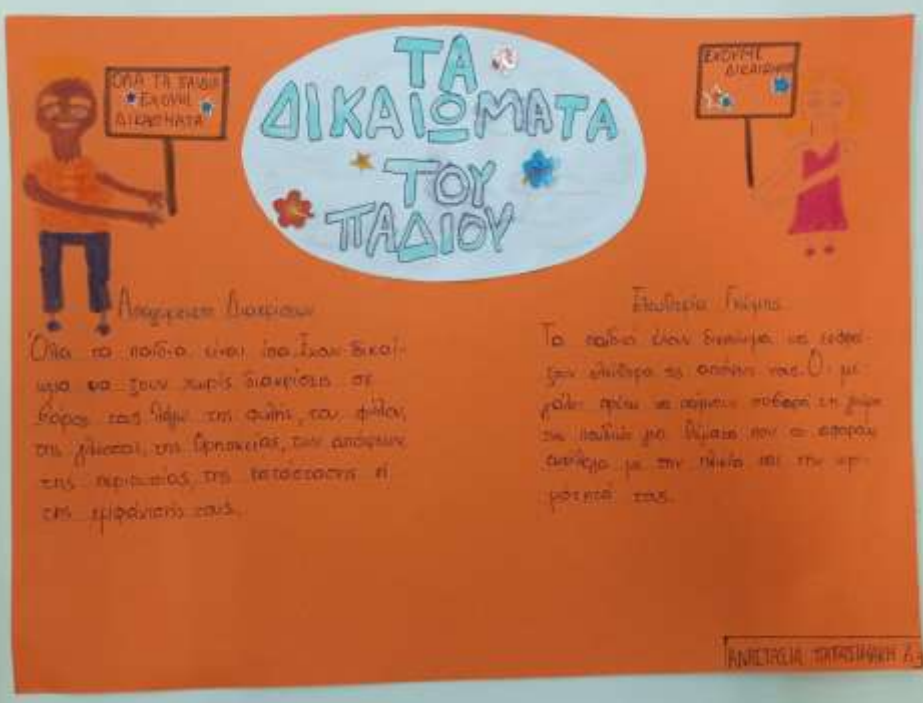 ΤΑ
ΔΙΚΑΙΩΜΑΤΑ
ΤΟΥ
ΠΑΔΙΟΥ
ΟΛΑ ΤΑ ΠΑΙΔΙΑ
ΕΧΟΥΜΕ
ΕΧΟΥΜΕ
Απαγόρευση Διακρίσεων
Όλα τα παιδιά είναι ίσα. Έχουν δικαί-
ωμα να ζουν χωρίς διακρίσεις σε
βάρος τους λόγω της φυλής, του φύλου,
της γλώσσας, της θρησκείας, των απόψεων
της περιουσίας, της κατάστασης ή
της εμφάνισής τους.
Ελευθερία Γνώμης
Τα παιδιά έχουν δικαίωμα να εκφρά-
ζουν ελεύθερα τις απόψεις τους. Οι με-
γάλοι πρέπει να παίρνουν σοβαρά τη γνώμη
των παιδιών για θέματα που τα αφορούν
ανάλογα με την ηλικία και την ωρι-
μότητά τους.
ΑΝΑΣΤΑΣΙΑ